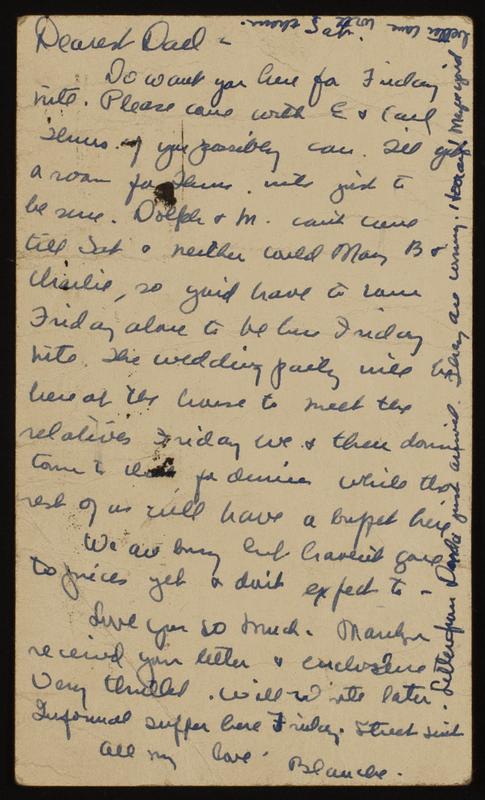 Sat.
Dearest Dad -
Do want you here for Friday
nite. Please come with E & Carl
Thurs. if you possibly can. I'll get
a room for Thurs. nite just to
be sure. Dolph & M. can't come
till Sat & neither could Mary B &
Charlie, so you'd have to come
Friday alone to be here Friday
nite. The wedding party will be
here at the house to meet the
relatives Friday eve & then down
town to for dinner while the
rest of us will have a buffet here
We are busy but haven't gone
to pieces yet & don't expect to -
Love you so much. Marilyn
received your letter & enclosure
Very thrilled. Will write later.
Informal supper here Friday. Street suit
all my love
Blanche.
Letter from just arrived. They are coming. Hooray! Maybe you'd
better write to them.